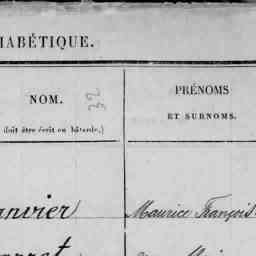 HABÉTIQUE.
NOM.
32
doit être écrit en bâtarde.)
PRÉNOMS
ET SURNOMS.
anvier
Maurice François